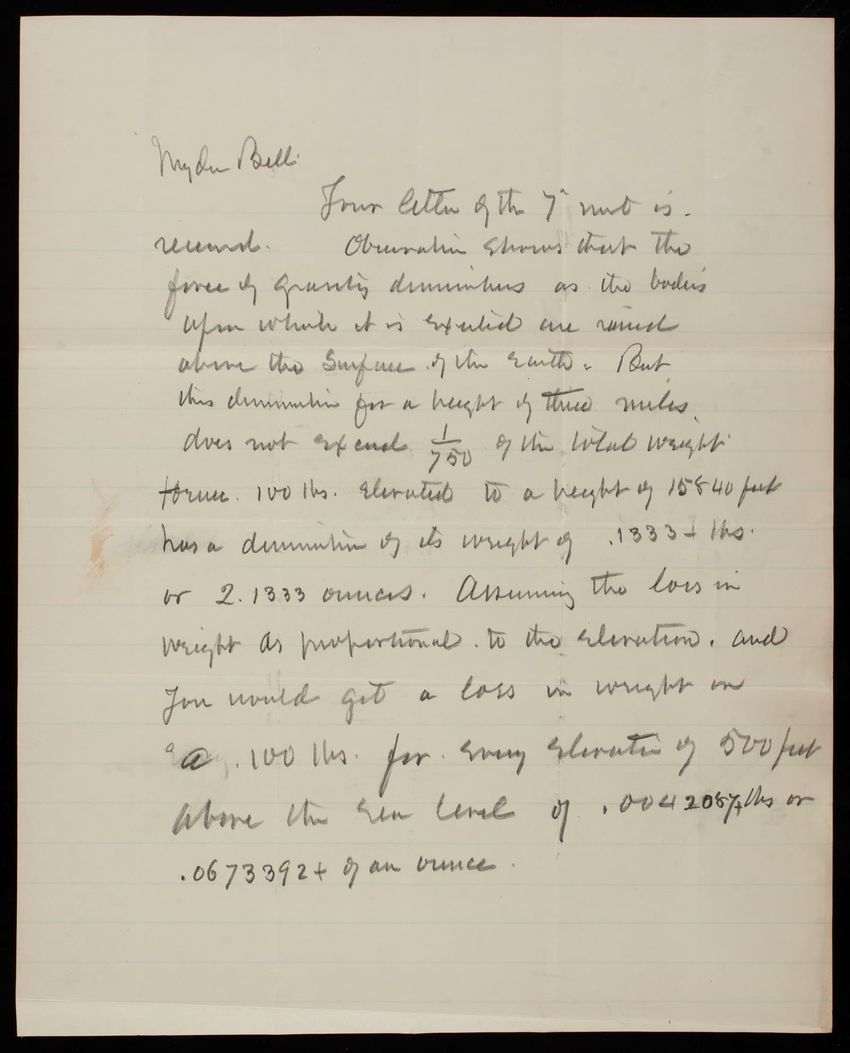 My dear Bell.
Your letter of the 7" inst is.
received. Observation shows that the
force of gravity diminishes as the bodies
upon which it is exerted are raised
above the surface of the Earth. But
this diminution for a height of three miles
does not exceed 1/750 of the total weight
Hence. 100 lbs. elevated to a height of 15840 feet
has a diminution of its weight of .1333+ lbs.
or 2.1333 ounces. Assuming the loss in
weight as proportional. to the elevation. and
you would get a loss in weight on
a .100 lbs. for. every elevation of 500 feet
above the sea level of .0042087+ lbs or
.0673392+ of an ounce.